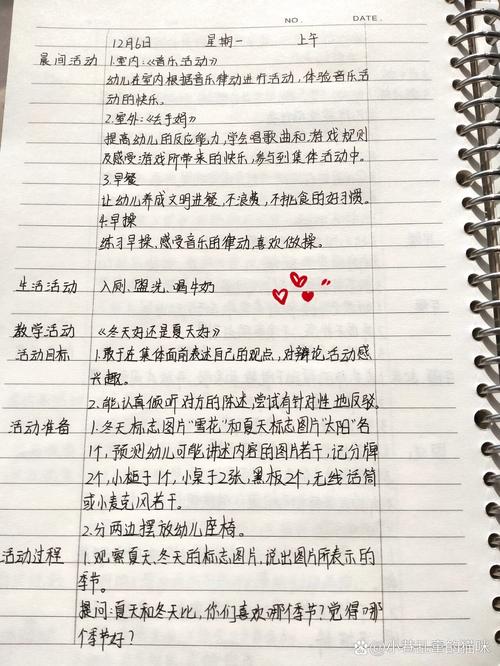 NO. DATE.
12月6日 星期一 上午
晨间活动 1.室内:《音乐活动》
幼儿在室内根据音乐律动进行活动,体验音乐活
动的快乐。
2.室外:《去手娟》
提高幼儿的反应能力,学会唱歌曲和游戏规则
及感受游戏所带来的快乐,参与到集体活动中。
3.早餐
让幼儿养成文明进餐,不浪费,不挑食的好习惯。
4.早操
练习早操,感受音乐的律动,喜欢做操。
生活活动 入厕、盥洗、喝牛奶
教学活动 《冬天好还是夏天好》
活动目标 1.敢于在集体面前表述自己的观点,对辩论活动感
兴趣。
2.能认真倾听对方的陈述,尝试有针对性地反驳。
活动准备 1.冬天标志图片"雪花"和夏天标志图片"太阳"各
1个,预测幼儿可能讲述内容的图片若干,记分牌
2个,小柜子1个,小桌子2张,黑板2个,无线话筒
或小麦克风若干。
2.分两边摆放幼儿座椅。
活动过程 1.观察夏天、冬天的标志图片,说出图片所表示的
季节。
提问:夏天和冬天比,你们喜欢哪个季节?觉得哪
个季节好?
@小巷乱童的猫咪